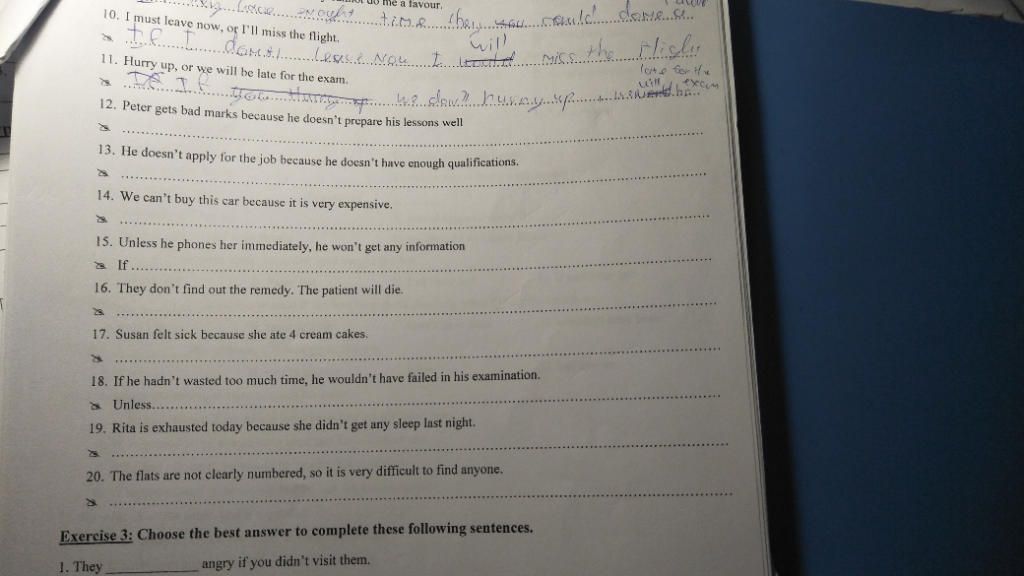 not do me a favour.
have time they could done a
10. I must leave now, or I'll miss the flight.
If I leave now I will miss the
11. Hurry up, or we will be late for the exam.
late for the
If we don't hurry up will be exam
12. Peter gets bad marks because he doesn't prepare his lessons well
13. He doesn't apply for the job because he doesn't have enough qualifications.
14. We can't buy this car because it is very expensive.
15. Unless he phones her immediately, he won't get any information
If
16. They don't find out the remedy. The patient will die.
17. Susan felt sick because she ate 4 cream cakes.
18. If he hadn't wasted too much time, he wouldn't have failed in his examination.
Unless
19. Rita is exhausted today because she didn't get any sleep last night.
20. The flats are not clearly numbered, so it is very difficult to find anyone.
Exercise 3: Choose the best answer to complete these following sentences.
1. They ____________ angry if you didn't visit them.